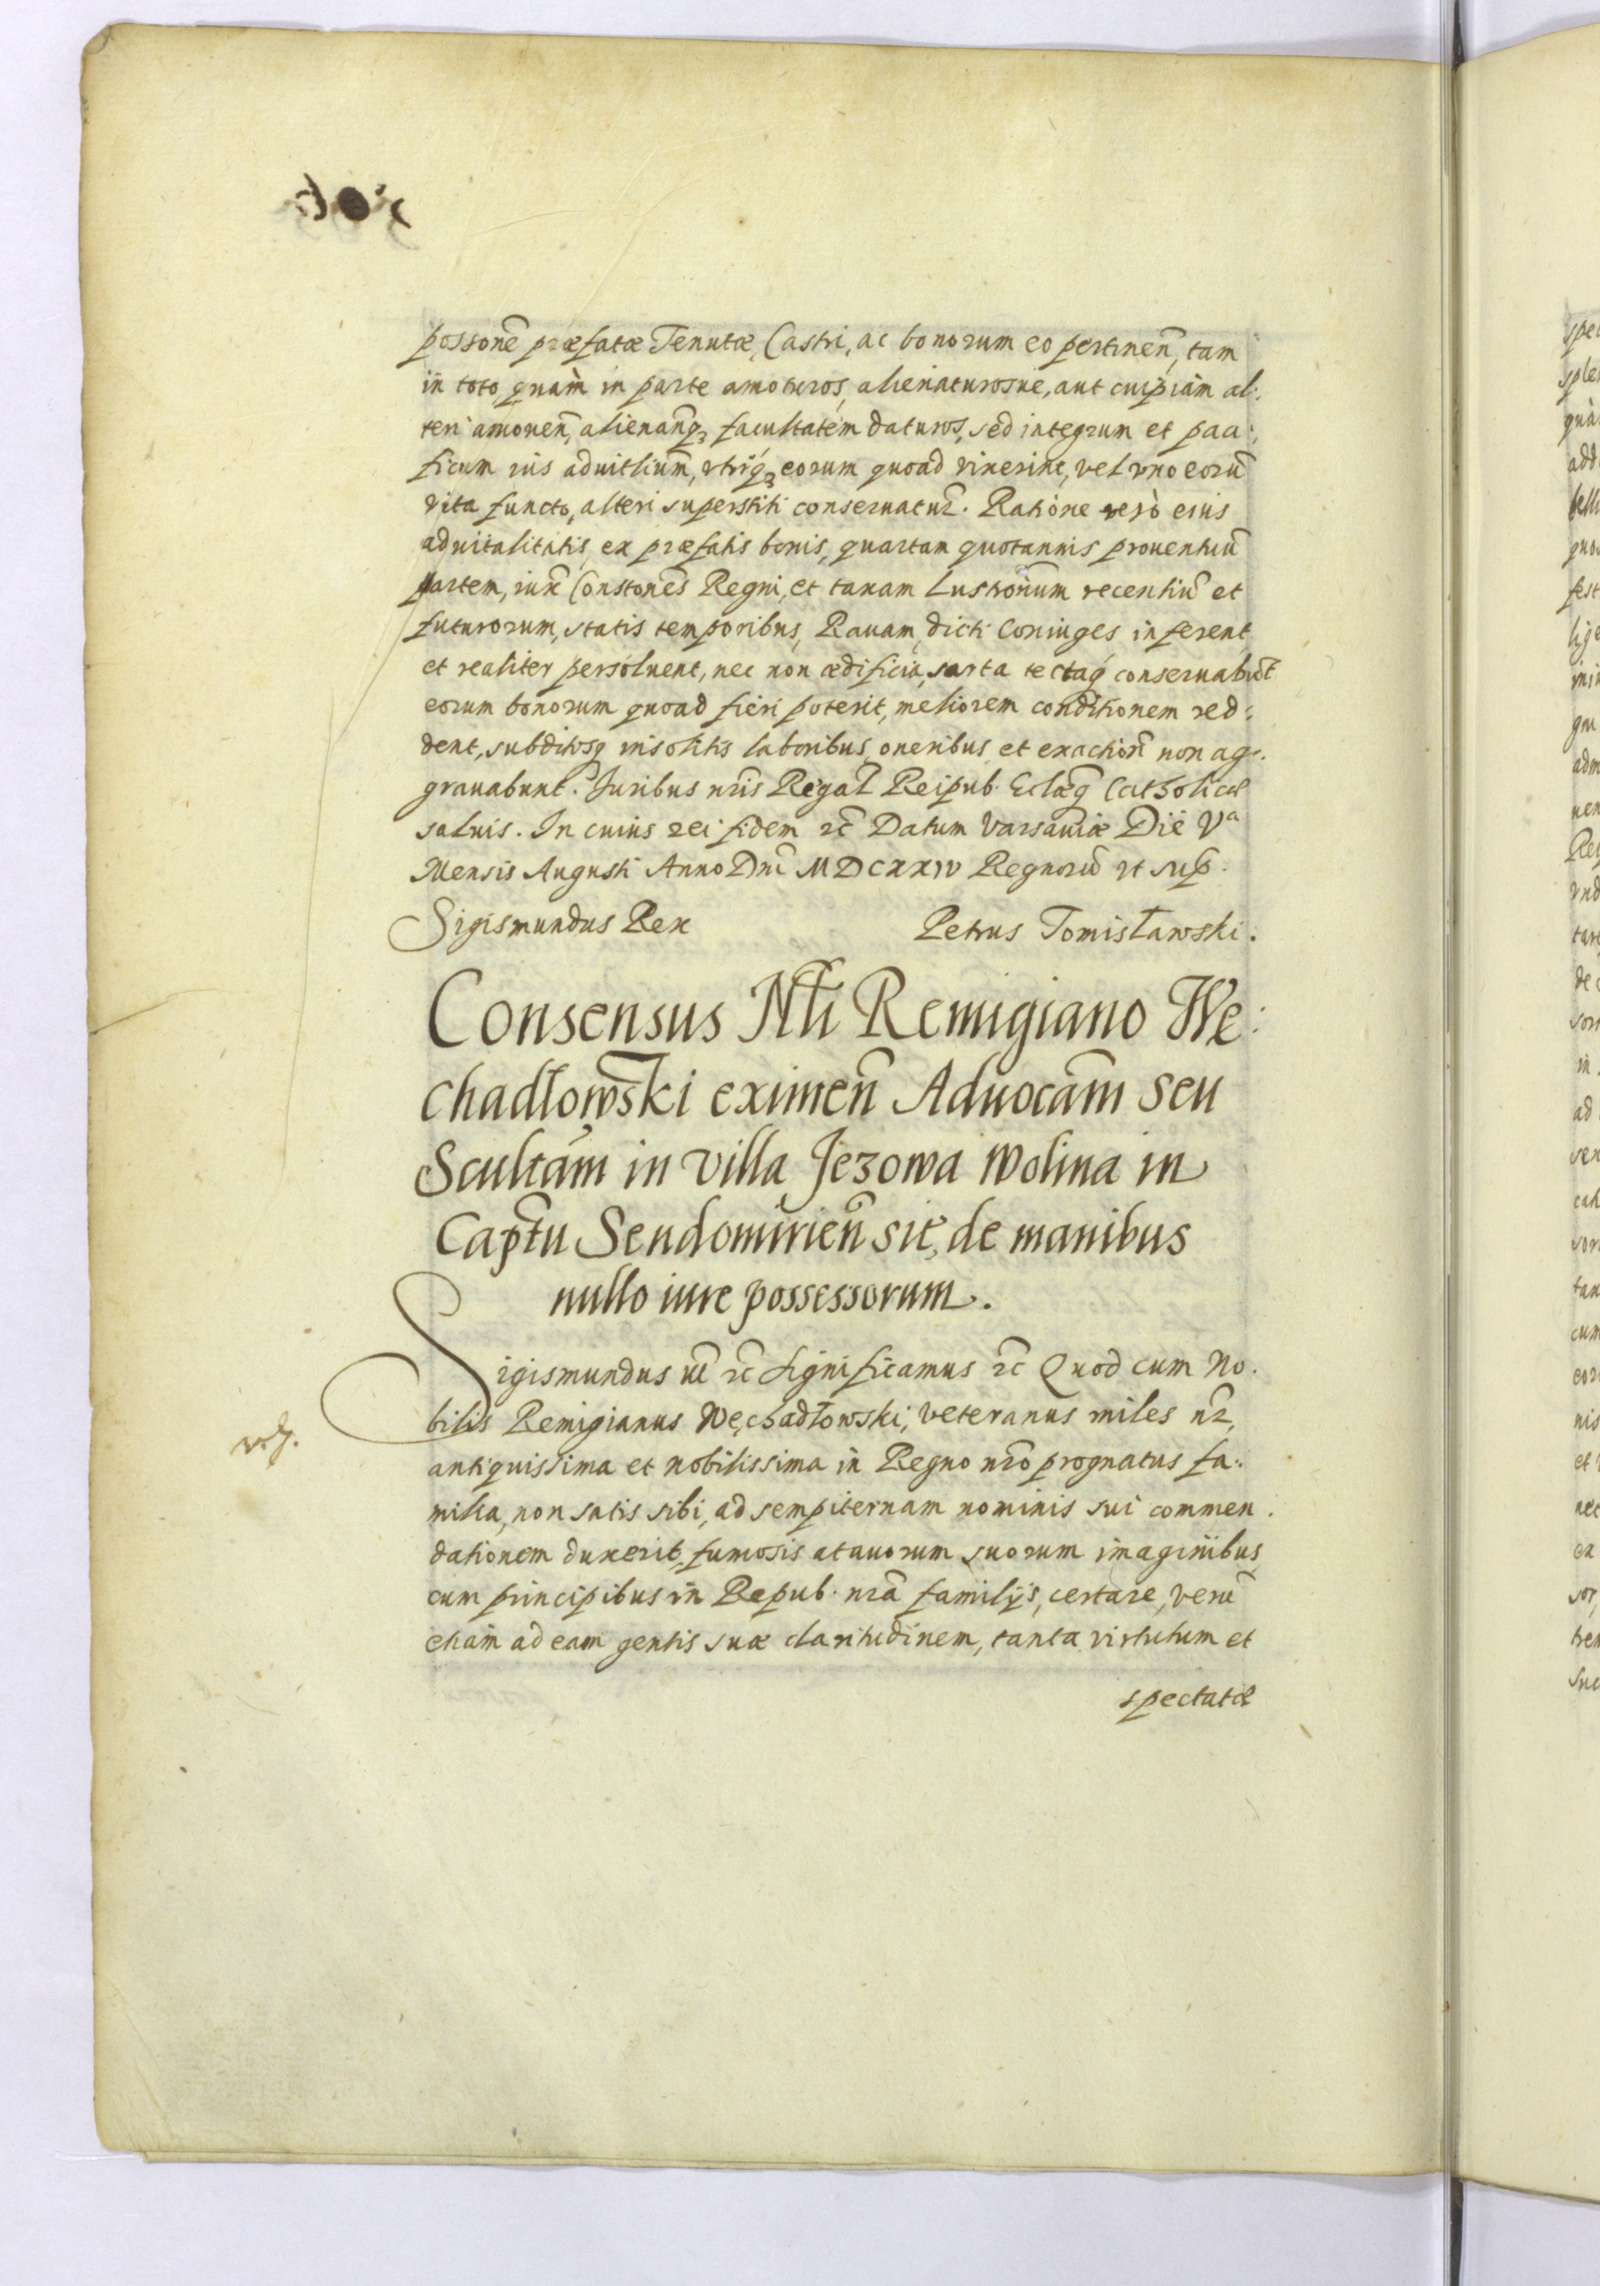 possonẽ præfatæ Tenutæ, Castri, ac bonorum eo pertinen̄, tam
in toto, quàm in parte amoturos, alienaturosue, aut cuipiam al:
teri amouen̄, alienan̄q₃ facultatem daturos, sed integrum et paci:
ficum ius aduitliūm, vtriq₃ eorum quoad vixerint, vel vno eorū
vita functo, alteri superstiti conseruatur̃. Ratione verò eius
aduitalitatis, ex præfatis bonis, quartam quotannis prouentuū
partem, iux̃ Constonẽs Regni, et taxam Lustrōnum recentiū et
futurorum, statis temporibus, Rauam, dicti Coniuges inferent
et realiter persoluent, nec non ædificia, sarta tectaq́ conseruabūt
eorum bonorum quoad fieri poterit, meliorem conditionem red:
dent, subditosq́ insolitis laboribus, oneribus et exactioñ non ag:
grauabunt. Juribus nr̃is Regal̃ Reipub. Eclæq̃ Catholicæ
saluis. In cuius rei fidem rc̃ Datum Varsauiæ Die Vᵃ
Mensis Augusti Anno Dnĩ MDCXXIV Regnorū vt sup̃.
Sigismundus Rex Petrus Tomisławski.
Consensus Nb̃li Remigiano We:
chadłowski eximen̄ Aduocãm seu
Scultãm in villa Jezowa Wolina in
Capt̃u Sendomirien̄ sit, de manibus
nullo iure possessorum.
Sigismundus ut̃ rc̃ Significamus rc̃ Quod cum No.
bilis Remigianus Węchadłowski, veteranus miles nr̃,
v.g.
antiquissima et nobilissima in Regno nr̃o prognatus fa:
milia, non satis sibi, ad sempiternam nominis sui commen.
dationem duxerit, fumosis atauorum suorum imaginibus,
cum principibus in Repub. nr̃a familijs, certare, verū
etiam ad eam gentis suæ claritudinem, tanta virtutum et
spectatæ